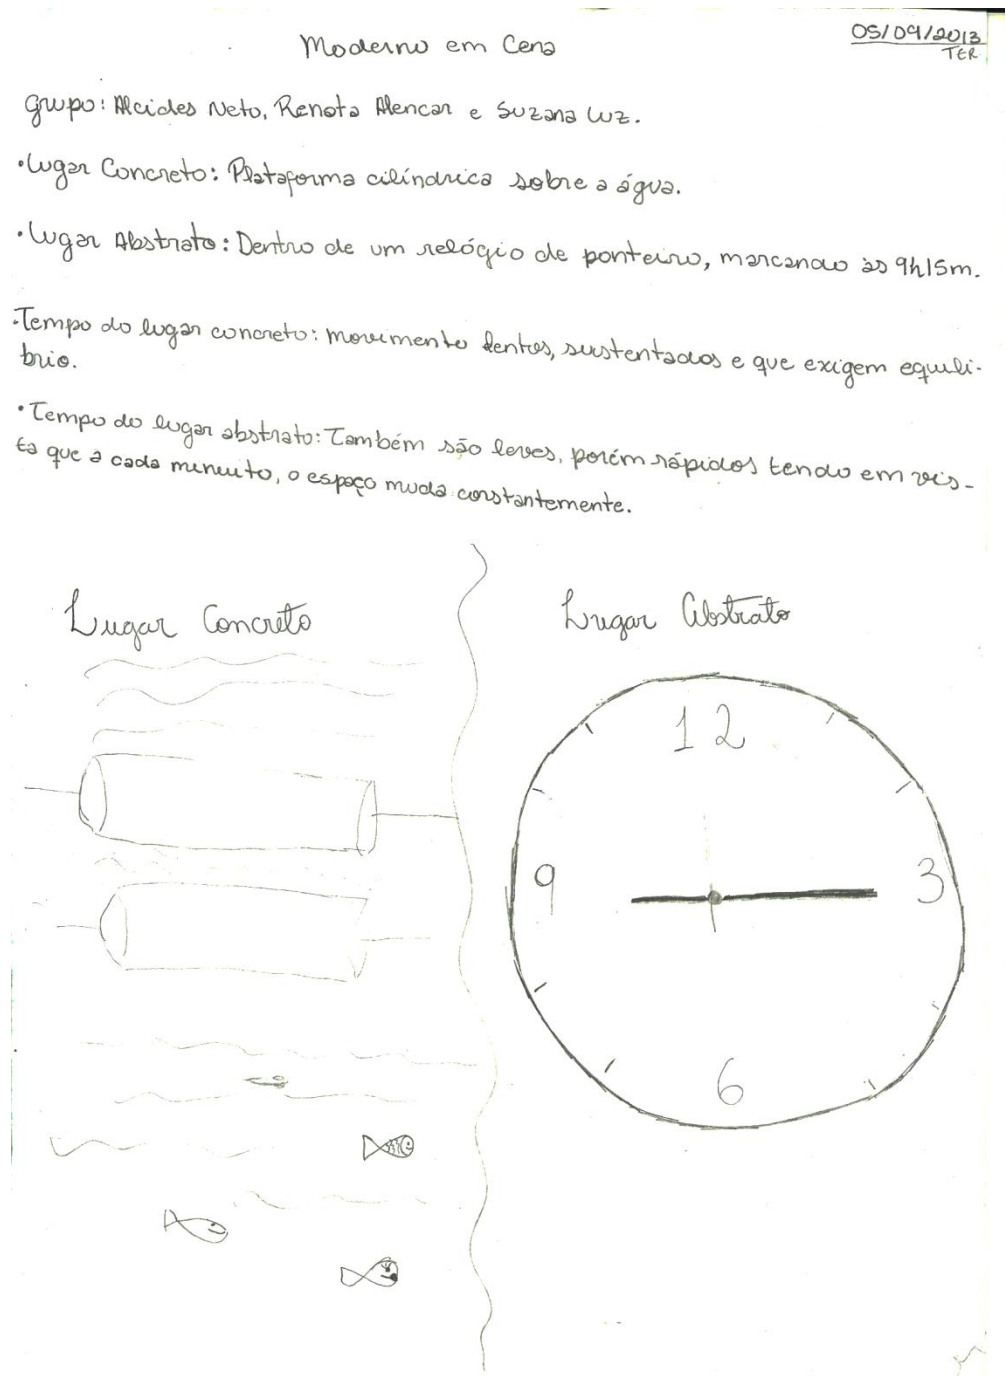 Moderno em Cena
05/09/2013
TER
Grupo: Alcides Neto, Renata Alencar e Suzana Luz.
•Lugar Concreto: Plataforma cilíndrica sobre a água.
•Lugar Abstrato: Dentro de um relógio de ponteiro, marcando às 9h15m.
•Tempo do lugar concreto: movimento lentos, sustentados e que exigem equilí-
brio.
•Tempo do lugar abstrato: Também são leves, porém rápidos tendo em vis-
ta que a cada minuto, o espaço muda constantemente.
Lugar Concreto
Lugar Abstrato
12
9
3
6